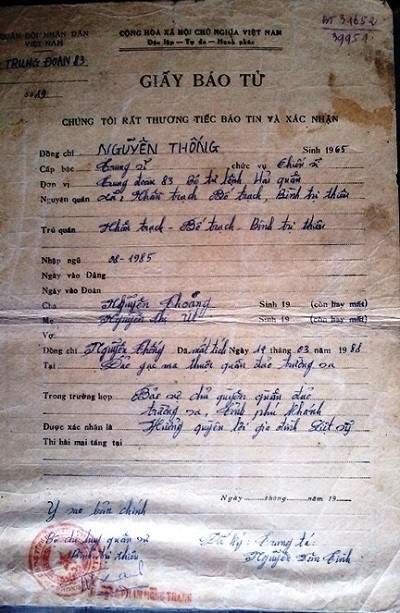 QUÂN ĐỘI NHÂN DÂN
VIỆT NAM
TRUNG ĐOÀN 83
CỘNG HÒA XÃ HỘI CHỦ NGHĨA VIỆT NAM
Độc lập — Tự do — Hạnh phúc
GIẤY BÁO TỬ
CHÚNG TÔI RẤT THƯƠNG TIẾC BÁO TIN VÀ XÁC NHẬN
Đồng chí NGUYỄN THỐNG Sinh 1965
Cấp bậc trung sĩ chức vụ chiến sĩ
Đơn vị trung đoàn 83 Bộ tư lệnh Hải quân
Nguyên quán xã: Nhân trạch, Bố trạch, Bình trị thiên
Trú quán Nhân trạch - Bố trạch - Bình trị thiên
Nhập ngũ 08-1985
Ngày vào Đảng
Ngày vào Đoàn
Cha Nguyễn Sinh 19 (còn hay mất)
Mẹ Nguyễn thị Sinh 19 (còn hay mất)
Vợ
Đồng chí Nguyễn thống Đã mất tích Ngày 14 tháng 03 năm 1988
Tại Đảo gạc ma thuộc quần đảo trường sa
Trong trường hợp Bảo vệ chủ quyền quần đảo
trường sa, tỉnh phú khánh
Được xác nhận là Hưởng quyền lợi gia đình liệt sỹ
Thi hài mai táng tại
Ngày tháng năm 19
Y sao bản chính
Bộ chỉ huy quân sự
Bình trị thiên
Đã ký: trung tá:
Nguyễn